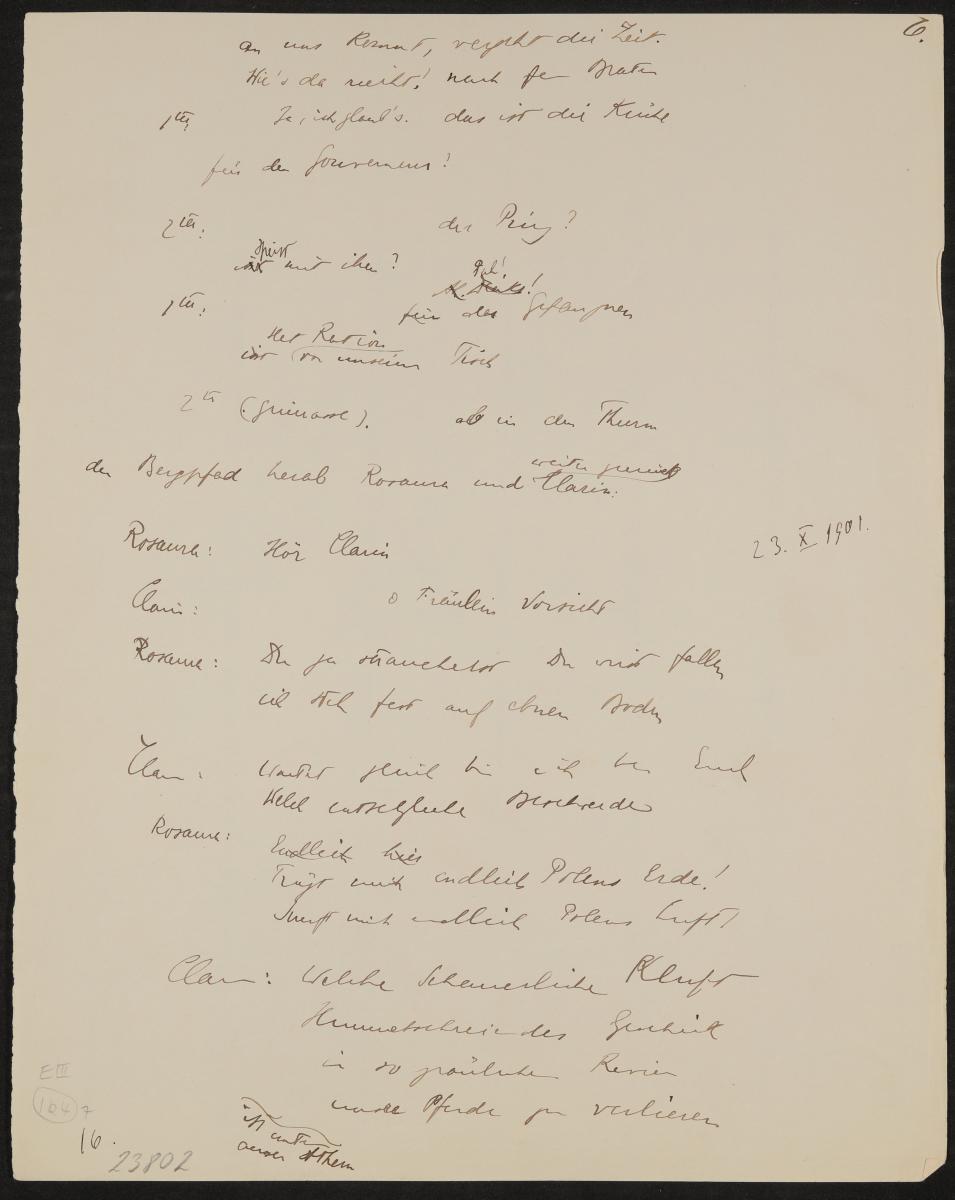 6.
an uns kommt, vergeht die Zeit.
Wie's da riecht! nach Braten
1ter: Ja, ich glaub's. das ist die Küche
für den Gouverneur!
2ter: der Prinz?
speist
ist mit ihm?
1ter: für den Gefangnen
der Ration
ist von unserm Tisch
2ter (Grimasse). ab in den Thurm
weiter zurück
den Bergpfad herab Rosaura und Clarin.
23. X 1901.
Rosaura: Hör Clarin
Clarin: o Fräulein Vorsicht
Rosaura: Du ja strauchelst Du wirst fallen
ich steh fest auf ebnen Boden
Clarin: Wartet gleich bin ich bei Euch
Welch entsetzliche Beschwerde
Rosaura:
Endlich hier
Trägt mich endlich Polens Erde!
mich endlich Polens Luft!
Clarin: Welche schauerliche Kluft
Himmelschreiendes Geschick
in so gräulichem Revier
unsre Pferde zu verlieren
ist unter
ausser Athem
E III
104 7
16.
23802